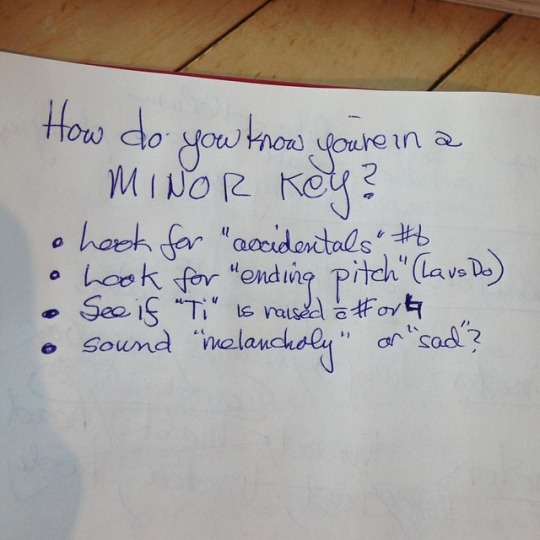 How do you know you're in a
MINOR KEY?
• Look for "accidentals" #b
• Look for "ending pitch" (La vs Do)
• See if "Ti" is raised c̄ # or ♮
• sound "melancholy" or "sad"?